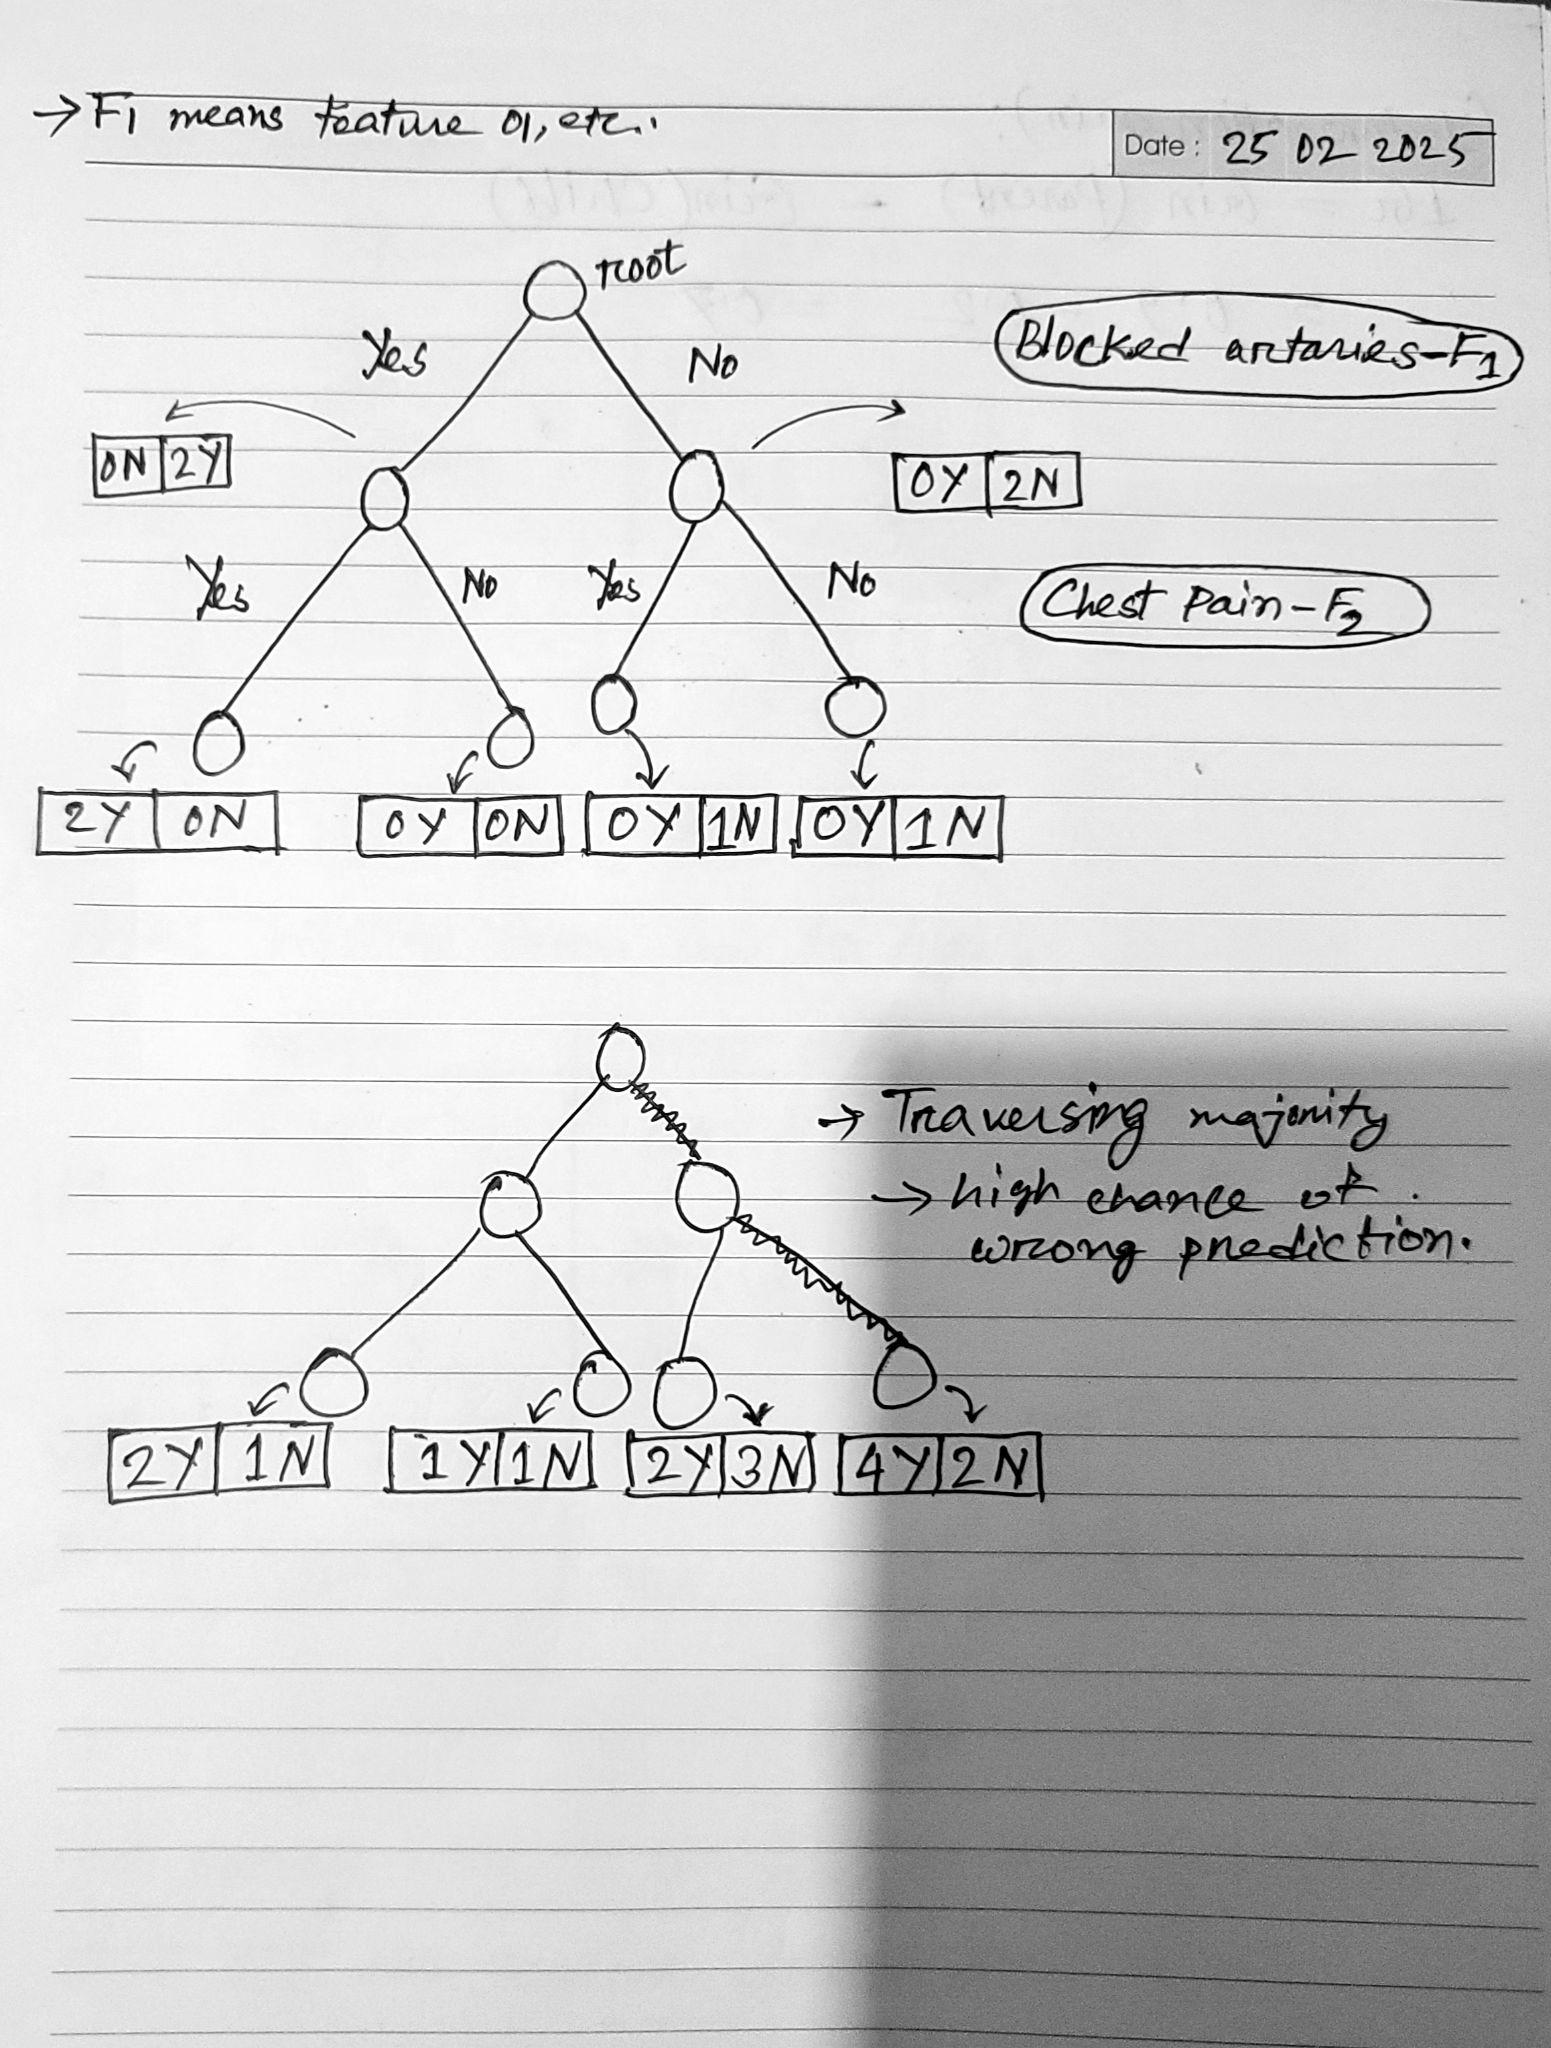 → F1 means feature 01, etc..
Date: 25 02 2025
root
Yes No
Blocked artaries-F1
0N 2Y
0Y 2N
Yes No Yes No
Chest Pain-F2
2Y 0N 0Y 0N 0Y 1N 0Y 1N
→ Traversing majority
→ high chance of
wrong prediction.
2Y 1N 1Y 1N 2Y 3N 4Y 2N